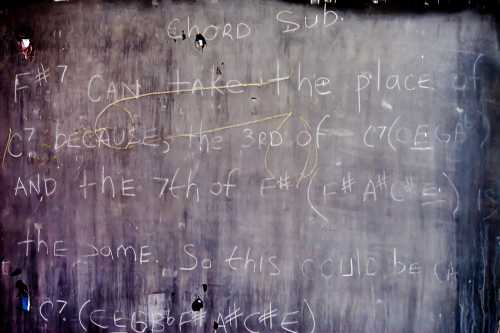 CHORD SUB.
F#7 CAN take the place of
C7 BECAUSE, the 3RD of C7 (CEGBb)
AND the 7th of F#7 (F# A# C# E)
the same. So this could be
C7. (CEGBbF#A#C#E)